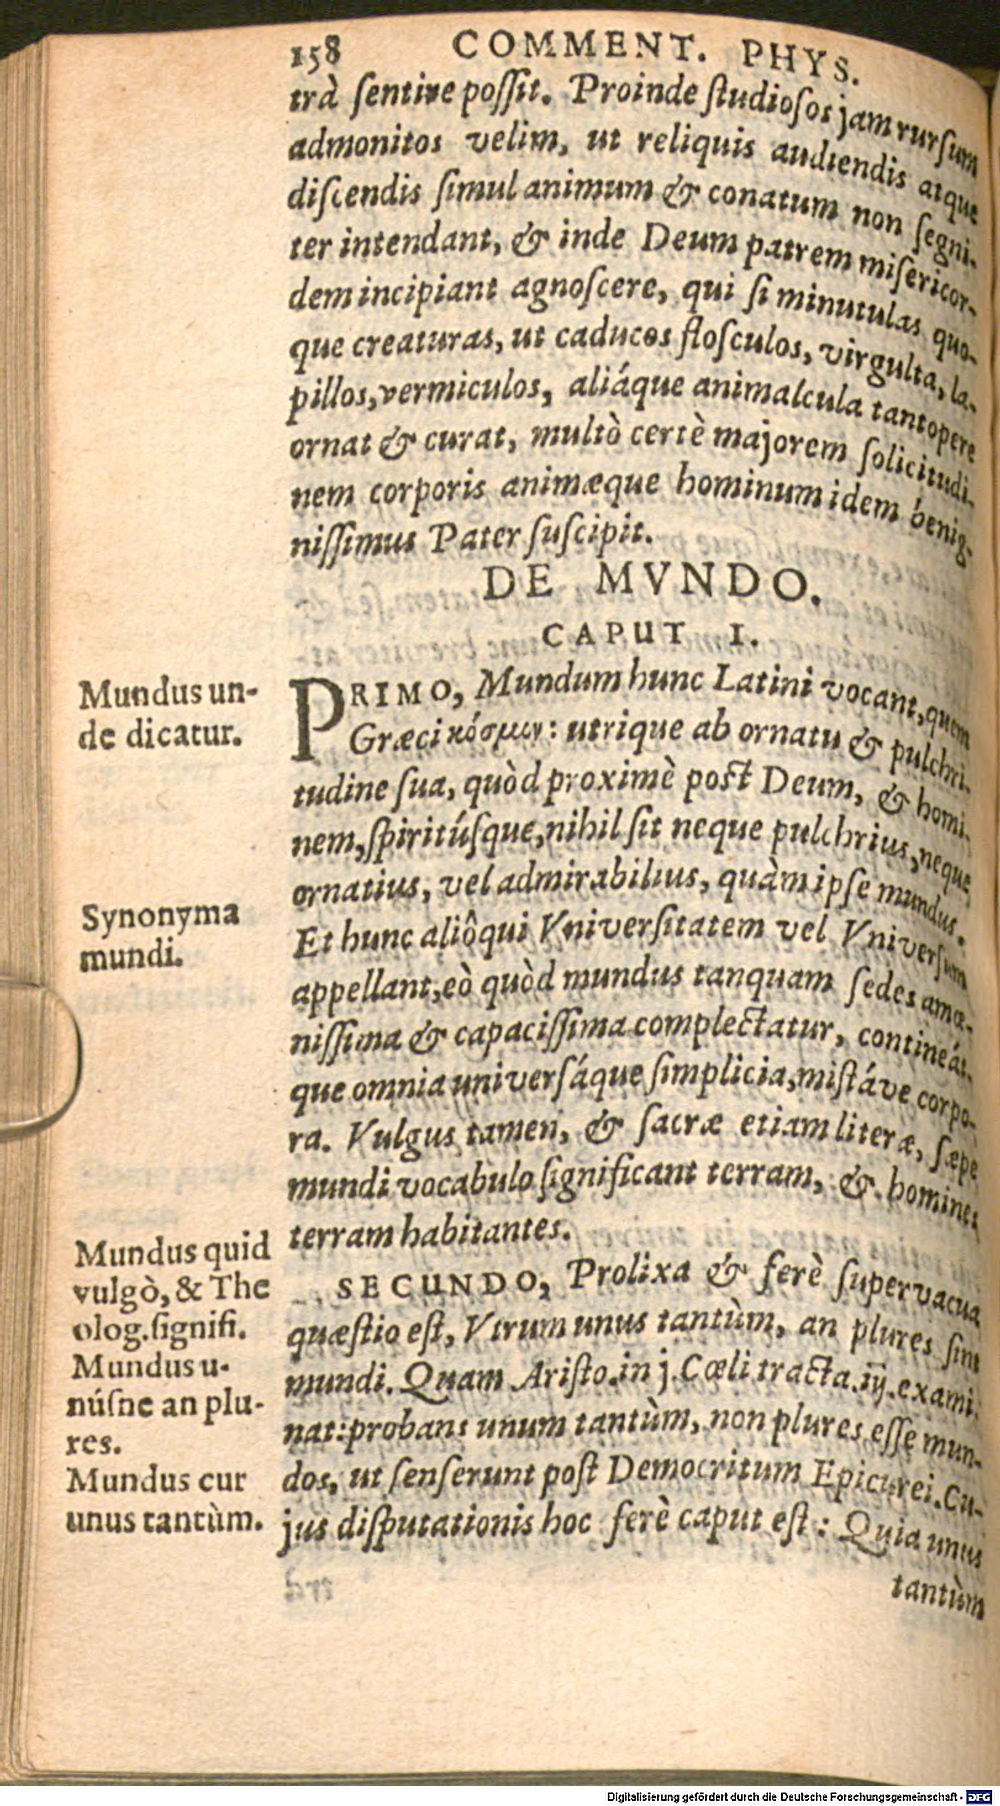 158 COMMENT. PHYS.
trà sentire possit. Proinde studiosos jam rursum
admonitos velim, ut reliquis audiendis atque
discendis simul animum & conatum non segni-
ter intendant, & inde Deum patrem misericor-
dem incipiant agnoscere, qui si minutulas quo-
que creaturas, ut caducos flosculos, virgulta, la-
pillos, vermiculos, aliáque animalcula tantopere
ornat & curat, multò certè majorem solicitudi-
nem corporis animæque hominum idem benig-
nissimus Pater suscipit.
DE MVNDO.
CAPUT I.
Mundus un-
de dicatur.
PRIMO, Mundum hunc Latini vocant, quem
Græci κόσμον: utrique ab ornatu & pulchri-
tudine sua, quòd proximè post Deum, & homi-
nem, spiritúsque, nihil sit neque pulchrius, neque
ornatius, vel admirabilius, quàm ipse mundus.
Synonyma
mundi.
Et hunc aliôqui Vniversitatem vel Vniversum
appellant, eò quòd mundus tanquam sedes amœ-
nissima & capacissima complectatur, contineát-
que omnia universáque simplicia, mistáve corpo-
ra. Vulgus tamen, & sacræ etiam literæ, sæpe
mundi vocabulo significant terram, & homines
terram habitantes.
Mundus quid
vulgò, & The
olog. signifi.
Mundus u-
núsne an plu-
res.
Mundus cur
unus tantùm.
SECUNDO, Prolixa & ferè supervacua
quæstio est, Vtrum unus tantùm, an plures sint
mundi. Quam Aristo. in j. Cœli tracta. ij. exami-
nat: probans unum tantùm, non plures esse mun-
dos, ut senserunt post Democritum Epicurei. Cu-
jus disputationis hoc ferè caput est: Quia unus
tantùm
Digitalisierung gefördert durch die Deutsche Forschungsgemeinschaft - DFG